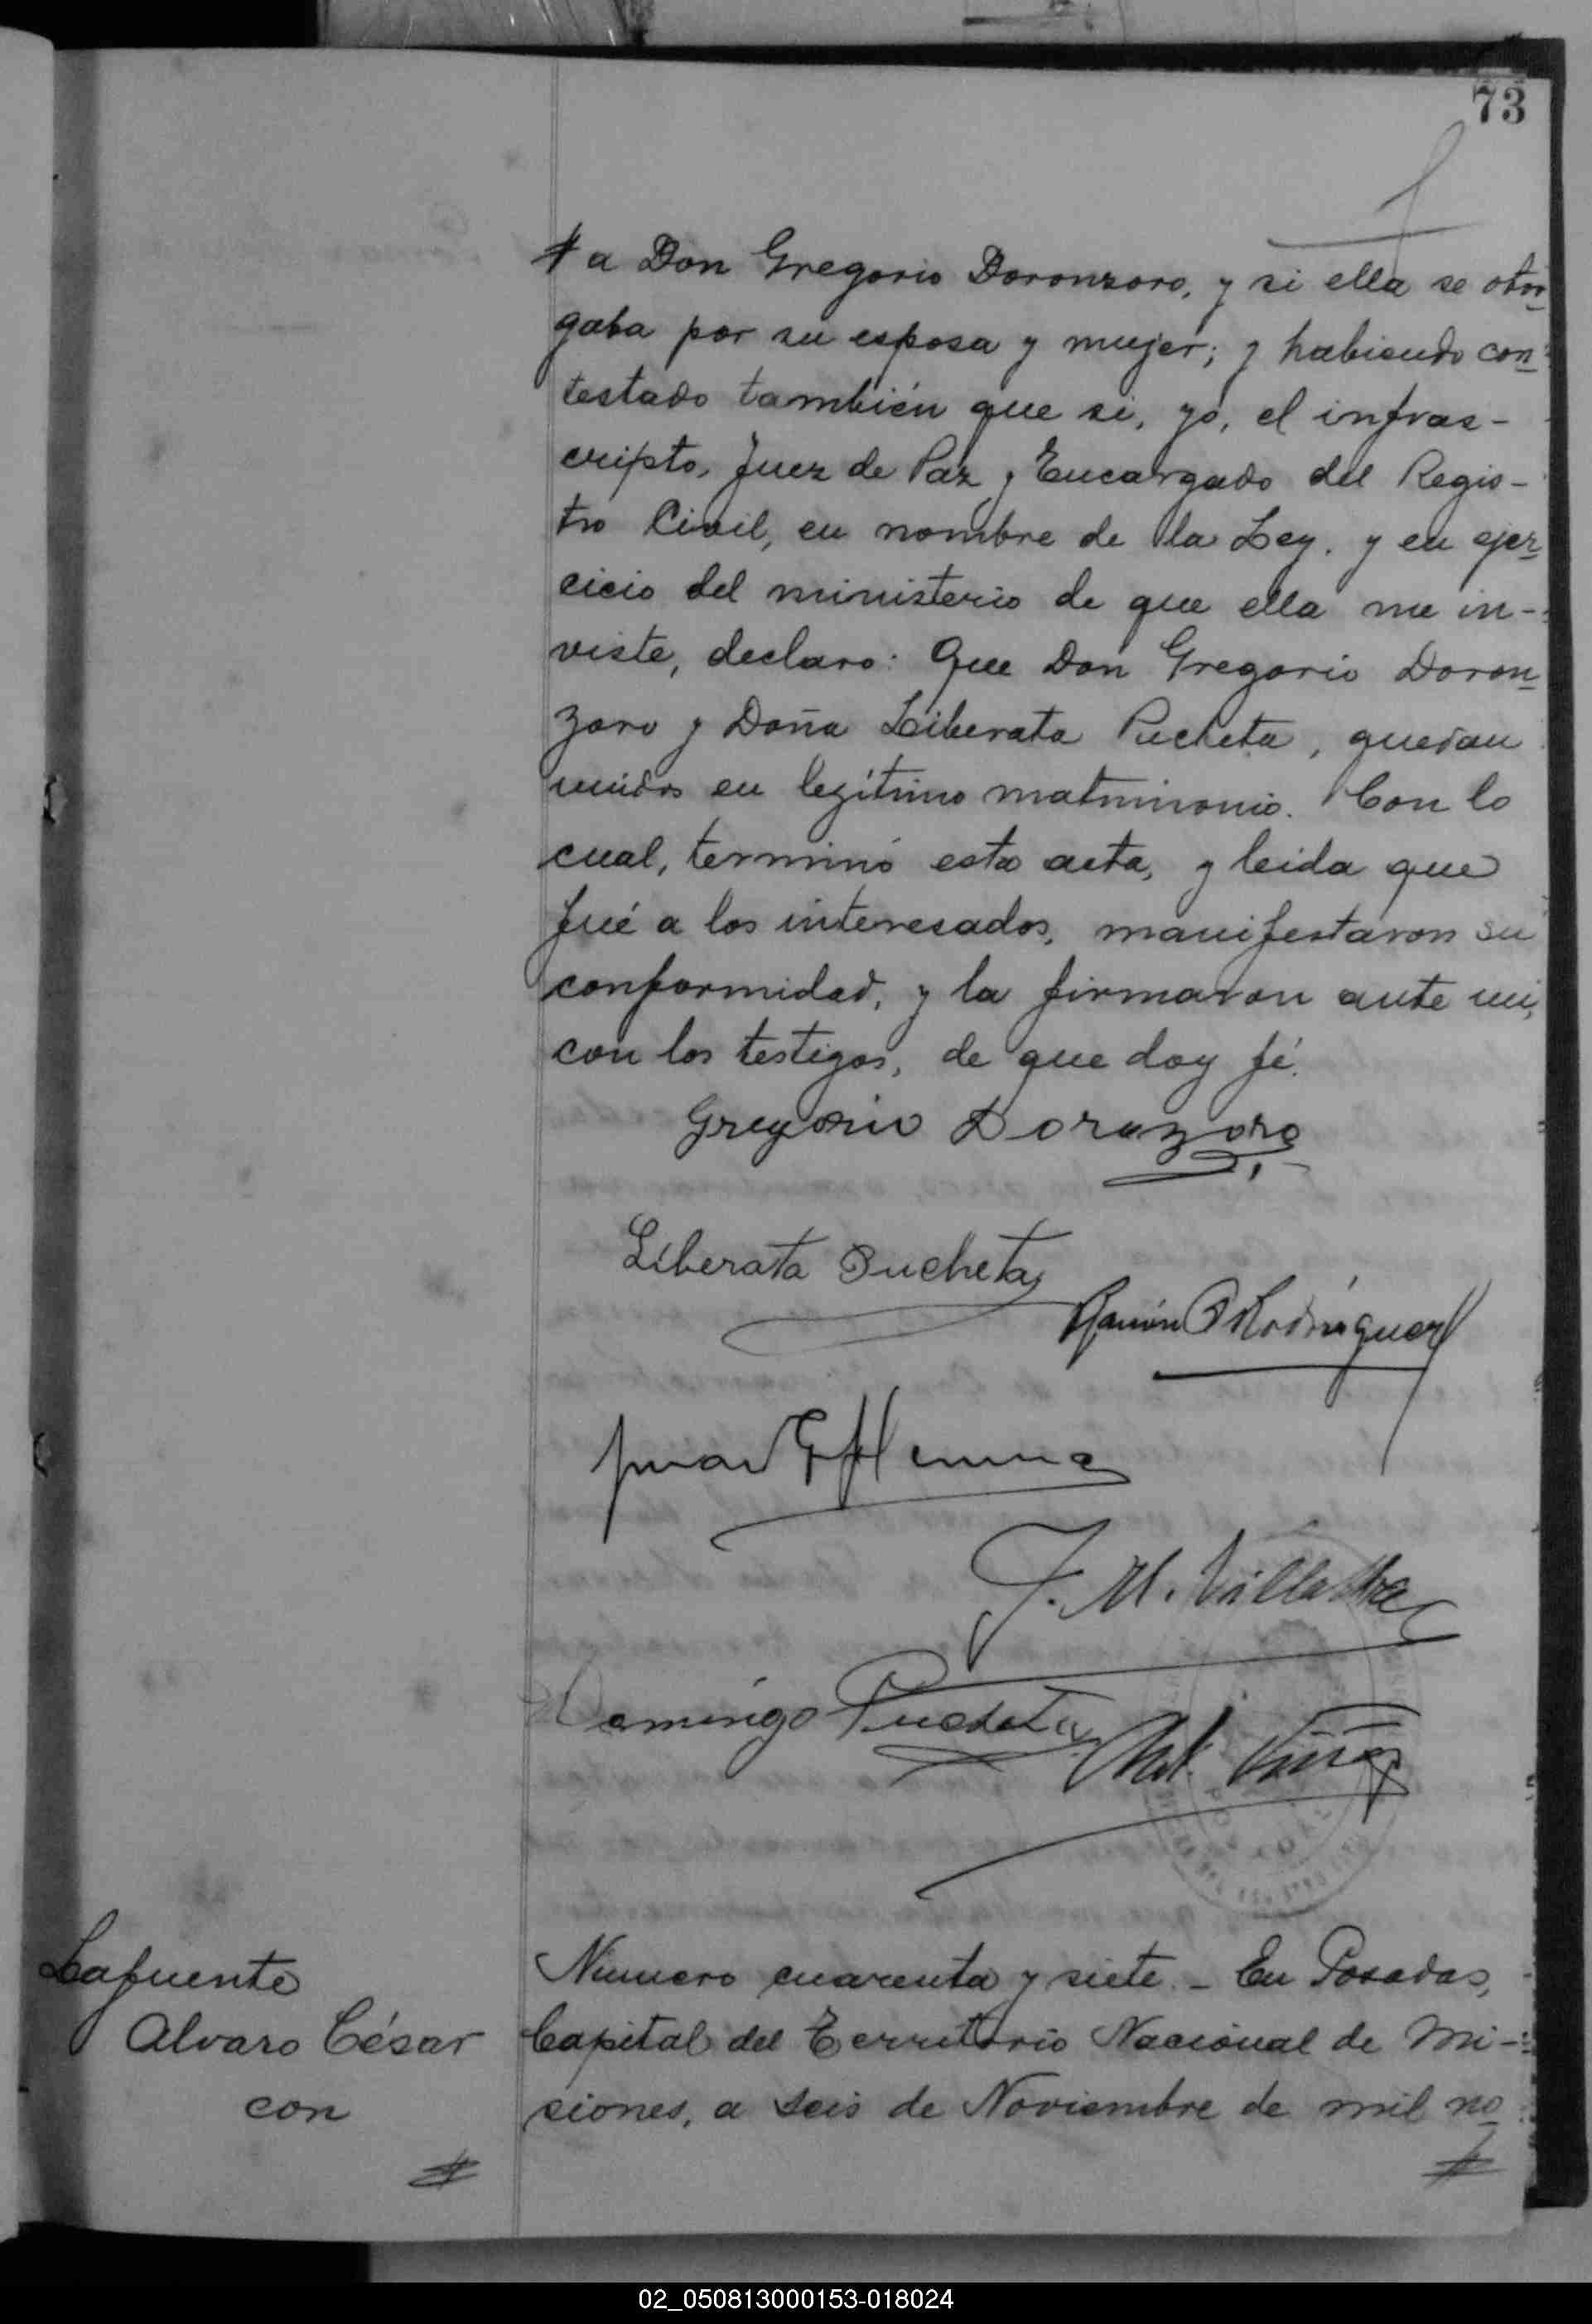 73
# a Don Gregorio Doronzoro, y si ella se otor
gaba por su esposa y mujer; y habiendo con
testado también que si, yo, el infras-
cripto, Juez de Paz y Encargado del Regis-
tro Civil, en nombre de la Ley, y en ejer
cicio del ministerio de que ella me in-
viste, declaro: Que Don Gregorio Doron
zoro y Doña Liberata Pucheta, quedan
unidos en legítimo matrimonio. Con lo
cual, terminó esta acta, y leida que
fué a los interesados, manifestaron su
conformidad, y la firmaron ante mi,
con los testigos, de que doy fé.
Gregorio Doronzoro
Liberata Pucheta
Ramón Rodriguez
Juan
J. M. Villalba
Domingo Pucheta
Lafuente
Alvaro César
con
#
Número cuarenta y siete. - En Posadas,
Capital del Territorio Nacional de Mi-
siones, a seis de Noviembre de mil no
#
02_050813000153-018024